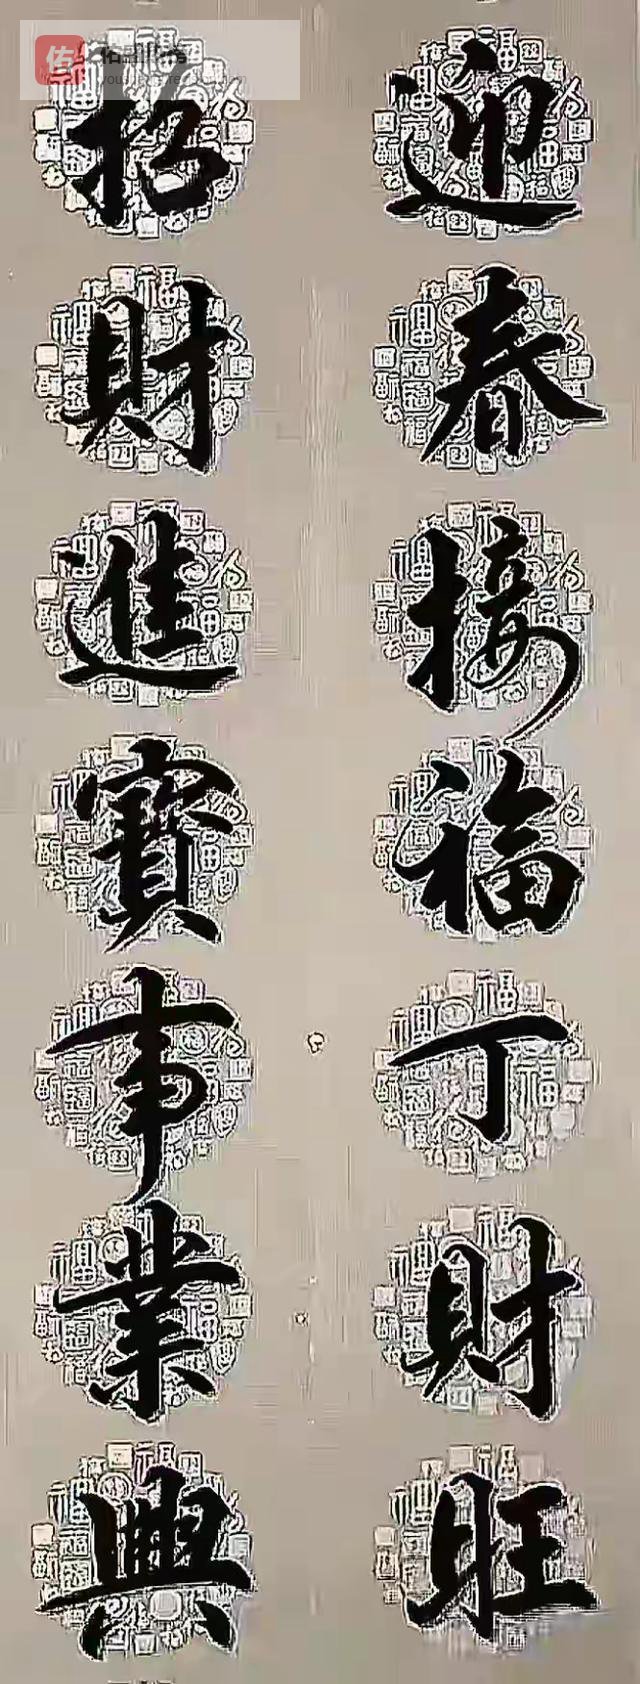 迎春接福丁財旺
招財進寶事業興
佑